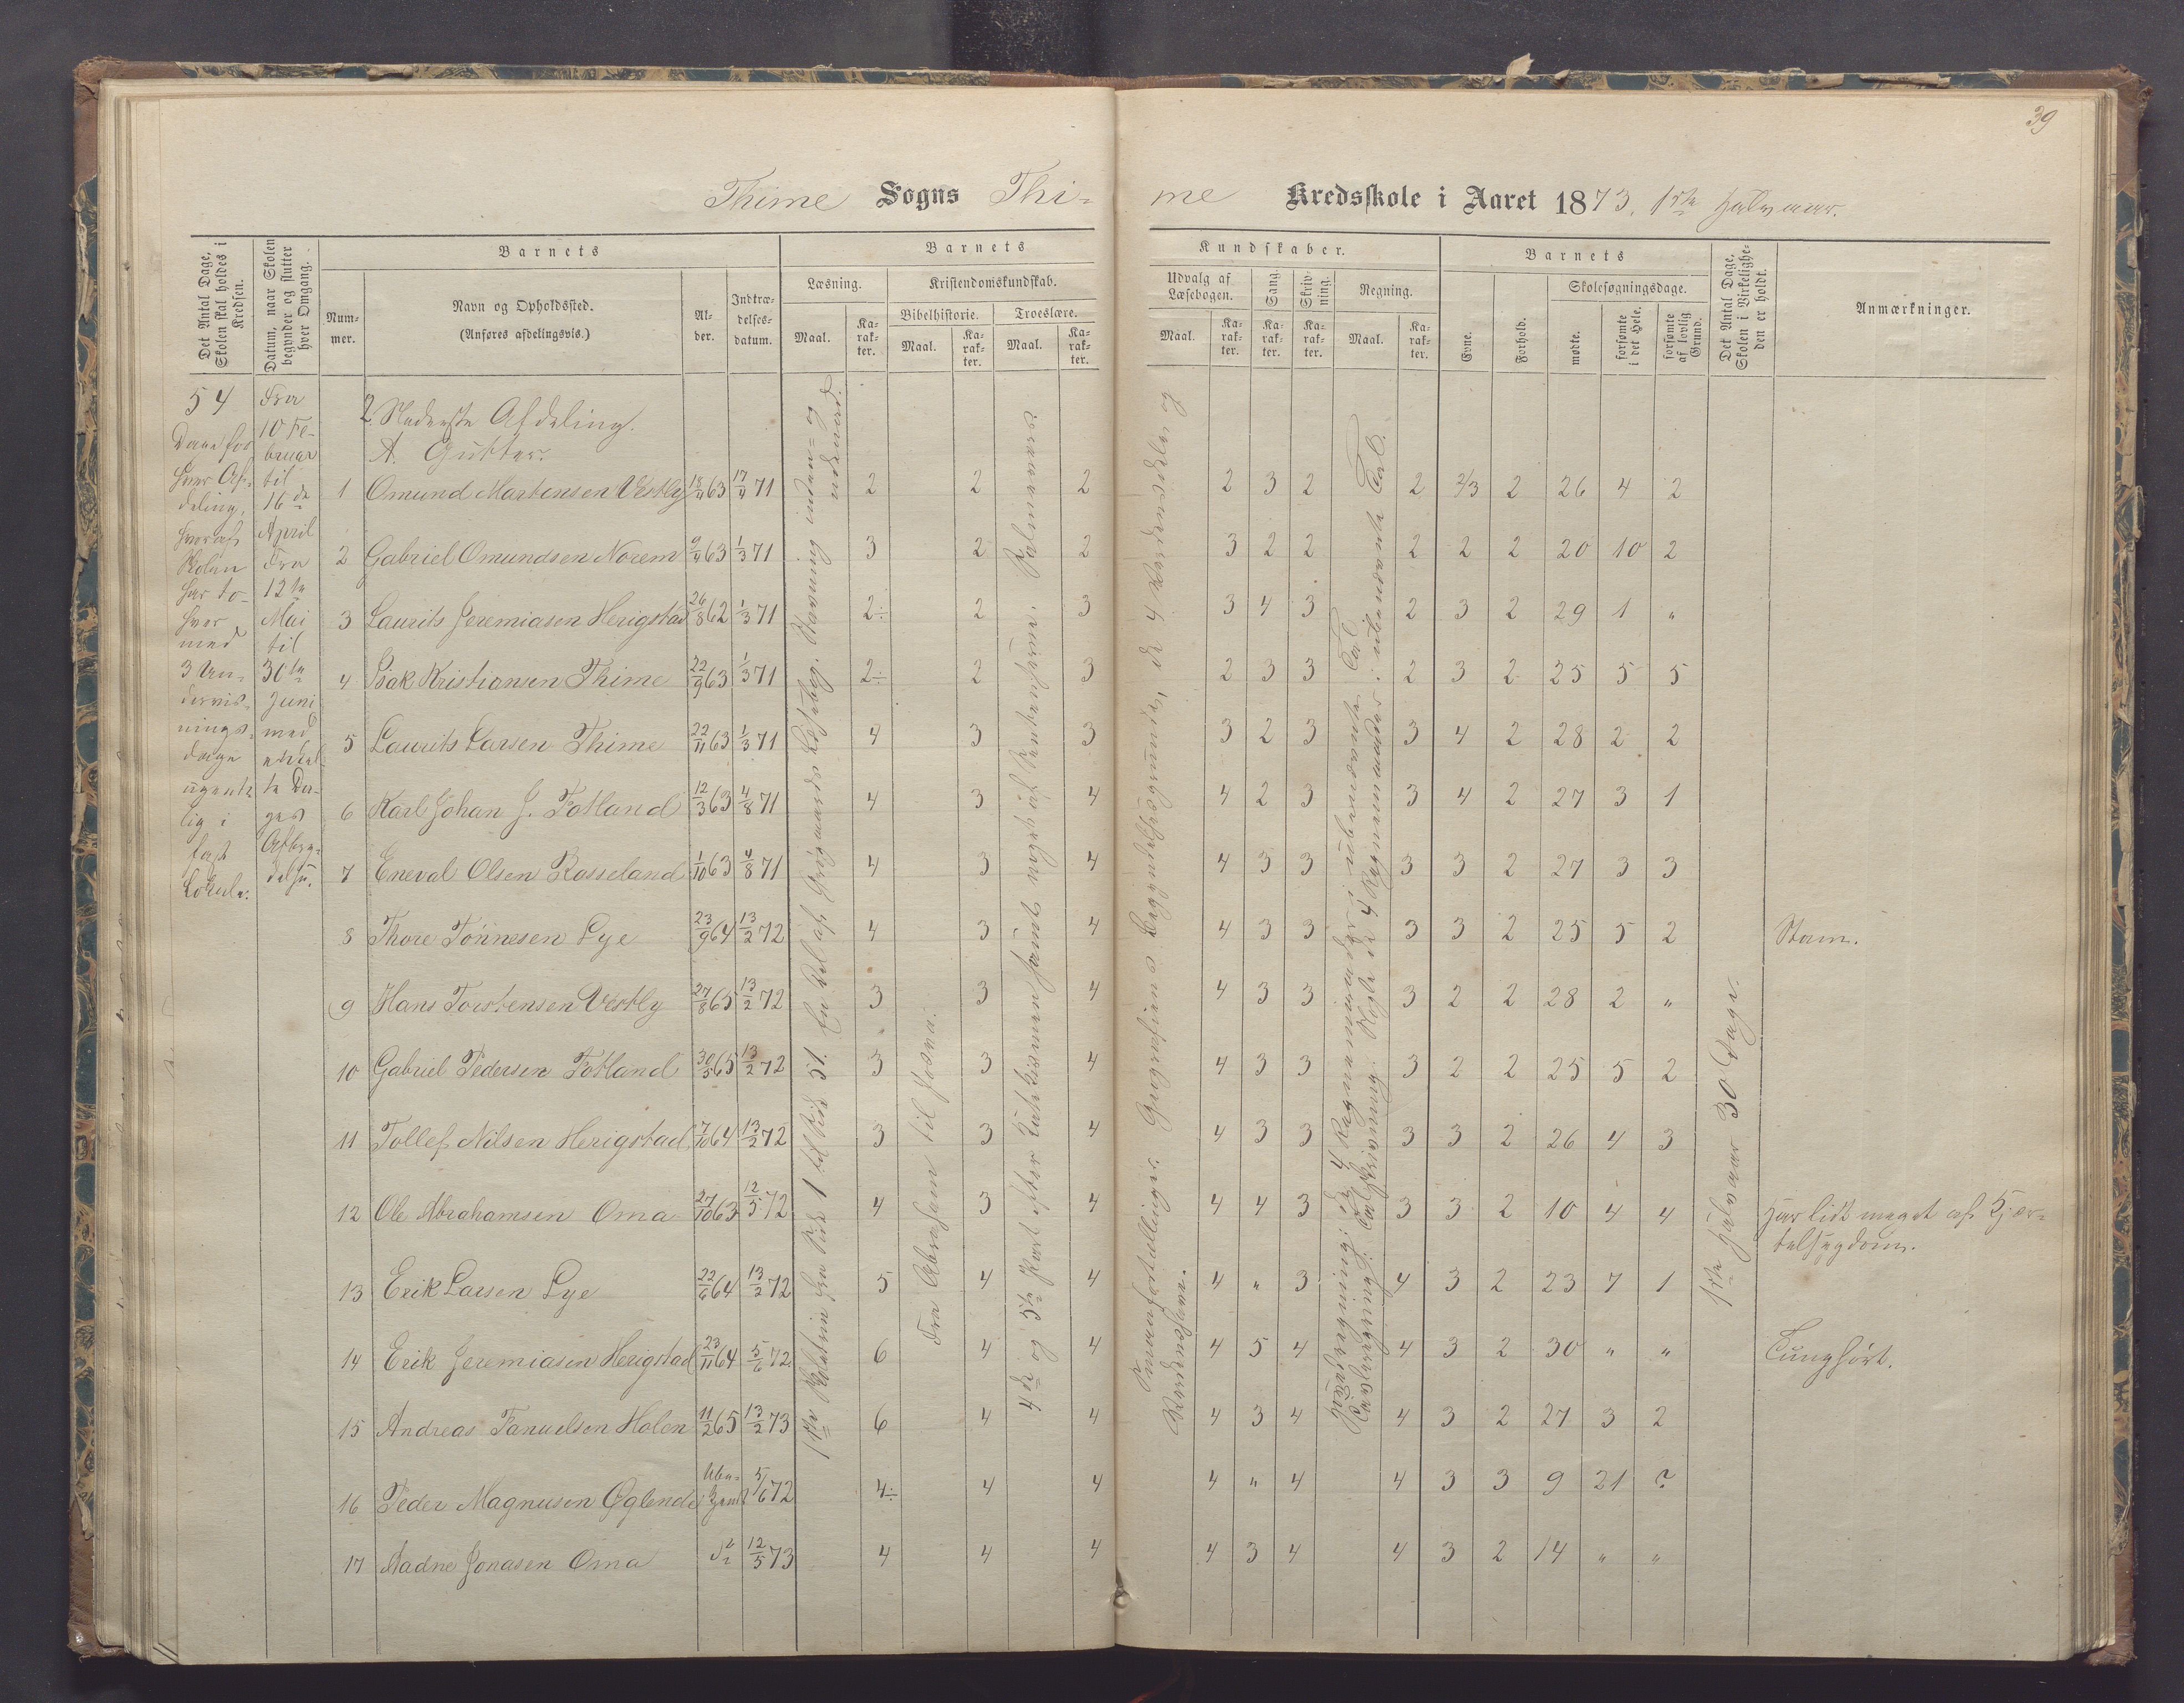 39
Thime Sogns Thi-
me Kredsskole i Aaret 1873, 1ste Halvaar.
Det Antal Dage, Skolen skal holdes i Kredsen.
Datum, naar Skolen begynder og slutter hver Omgang.
Barnets
Num-
mer.
Navn og Opholdssted.
(Anføres afdelingsvis.)
Al-
der.
Indtræ-
delses-
datum.
Barnets
Læsning.
Maal.
Ka-
rak-
ter.
Kristendomskundskab.
Bibelhistorie.
Maal.
Ka-
rak-
ter.
Troeslære.
Maal.
Ka-
rak-
ter.
Kundskaber.
Udvalg af
Læsebogen.
Maal.
Ka-
rak-
ter.
Sang.
Ka-
rak-
ter.
Skriv-
ning.
Ka-
rak-
ter.
Regning.
Maal.
Ka-
rak-
ter.
Barnets
Evne.
Forhold.
Skolesøgningsdage.
mødte.
forsømte
i det Hele.
forsømte
af lovlig
Grund.
Det Antal Dage,
Skolen i Virkelighe-
den er holdt.
Anmærkninger.
54
Dage for
hver Af-
deling,
hvoraf
Skolen
har to-
hver
med
3 Un-
dervis-
nings-
dage
ugent-
lig i
fast
Lokale.
Fra
10 Fe-
bruar
til
16de
April
Fra
12te
Mai
til
30te
Juni
med
enkel-
te Da-
ges
Afbry-
delse.
2. Nederste Afdeling.
A. Gutter.
1 Omund Martensen Vestly 18/4 63 17/4 71 2 2 2 2 3 2 2 2/3 2 26 4 2
2 Gabriel Omundsen Norem 9/4 63 1/3 71 3 2 2 3 2 2 2 2 2 20 10 2
3 Laurits Jeremiasen Herigstad 26/8 62 1/3 71 2÷ 2 3 3 4 3 2 3 2 29 1 "
4 Isak Kristiansen Thime 22/9 63 1/3 71 2÷ 2 3 2 3 3 2 3 2 25 5 5
5 Laurits Larsen Thime 22/11 63 1/3 71 4 3 3 3 2 3 3 4 2 28 2 2
6 Karl Johan J. Fotland 12/3 63 4/8 71 4 3 4 4 2 3 3 4 2 27 3 1
7 Eneval Olsen Rosseland 1/10 63 4/8 71 4 3 4 4 3 3 3 3 2 27 3 3
8 Thore Tønnesen Lye 23/9 64 13/2 72 4 3 4 4 3 3 3 3 2 25 5 2 Stam.
9 Hans Torstensen Vestly 27/8 65 13/2 72 3 3 4 4 3 3 3 2 2 28 2 "
10 Gabriel Pedersen Fotland 30/5 65 13/2 72 3 3 4 4 3 3 3 2 2 25 5 2
11 Tollef Nilsen Herigstad 7/10 64 13/2 72 3 3 4 4 3 3 3 3 2 26 4 3
12 Ole Abrahamsen Oma 27/10 63 12/5 72 4 3 4 4 4 3 3 3 2 10 4 4 Har lidt meget af Kjer-
telsygdom.
13 Erik Larsen Lye 22/6 64 13/2 72 5 4 4 4 " 3 4 3 2 23 7 1
14 Erik Jeremiasen Herigstad 23/11 64 5/6 72 6 4 4 4 5 4 4 3 2 30 " " Tunghørt.
15 Andreas Tanuelsen Holen 11/2 65 13/2 73 6 4 4 4 3 4 4 3 2 27 3 2
16 Peder Magnusen Øglend Ube-
kjendt 5/6 72 4÷ 4 4 4 " 4 4 3 3 9 21 ?
17 Aadne Jonasen Oma 12/5 73 4 4 4 4 3 4 4 3 2 14 " "
1ste Skoletrin fra Side 1 til Side 51. En Del af Grøgaards Læsebog. Stavning inden- og
udenad.
Fra Abraham til Josva.
4de og 5te Part efter Katekismen samt noget af Sententserne. Salmevers.
Smaafortællinger. Geografiens Begyndelsesgrunde, de 4 Verdensdele og
Verdenshave.
Hovedregning: de 4 Regnemaader i ubenævnte Tal.
Tavleregning: Talskrivning. Nogle de 4 Regnemaader i ubenævnte Tal.
1ste Halvaar 30 Dage.